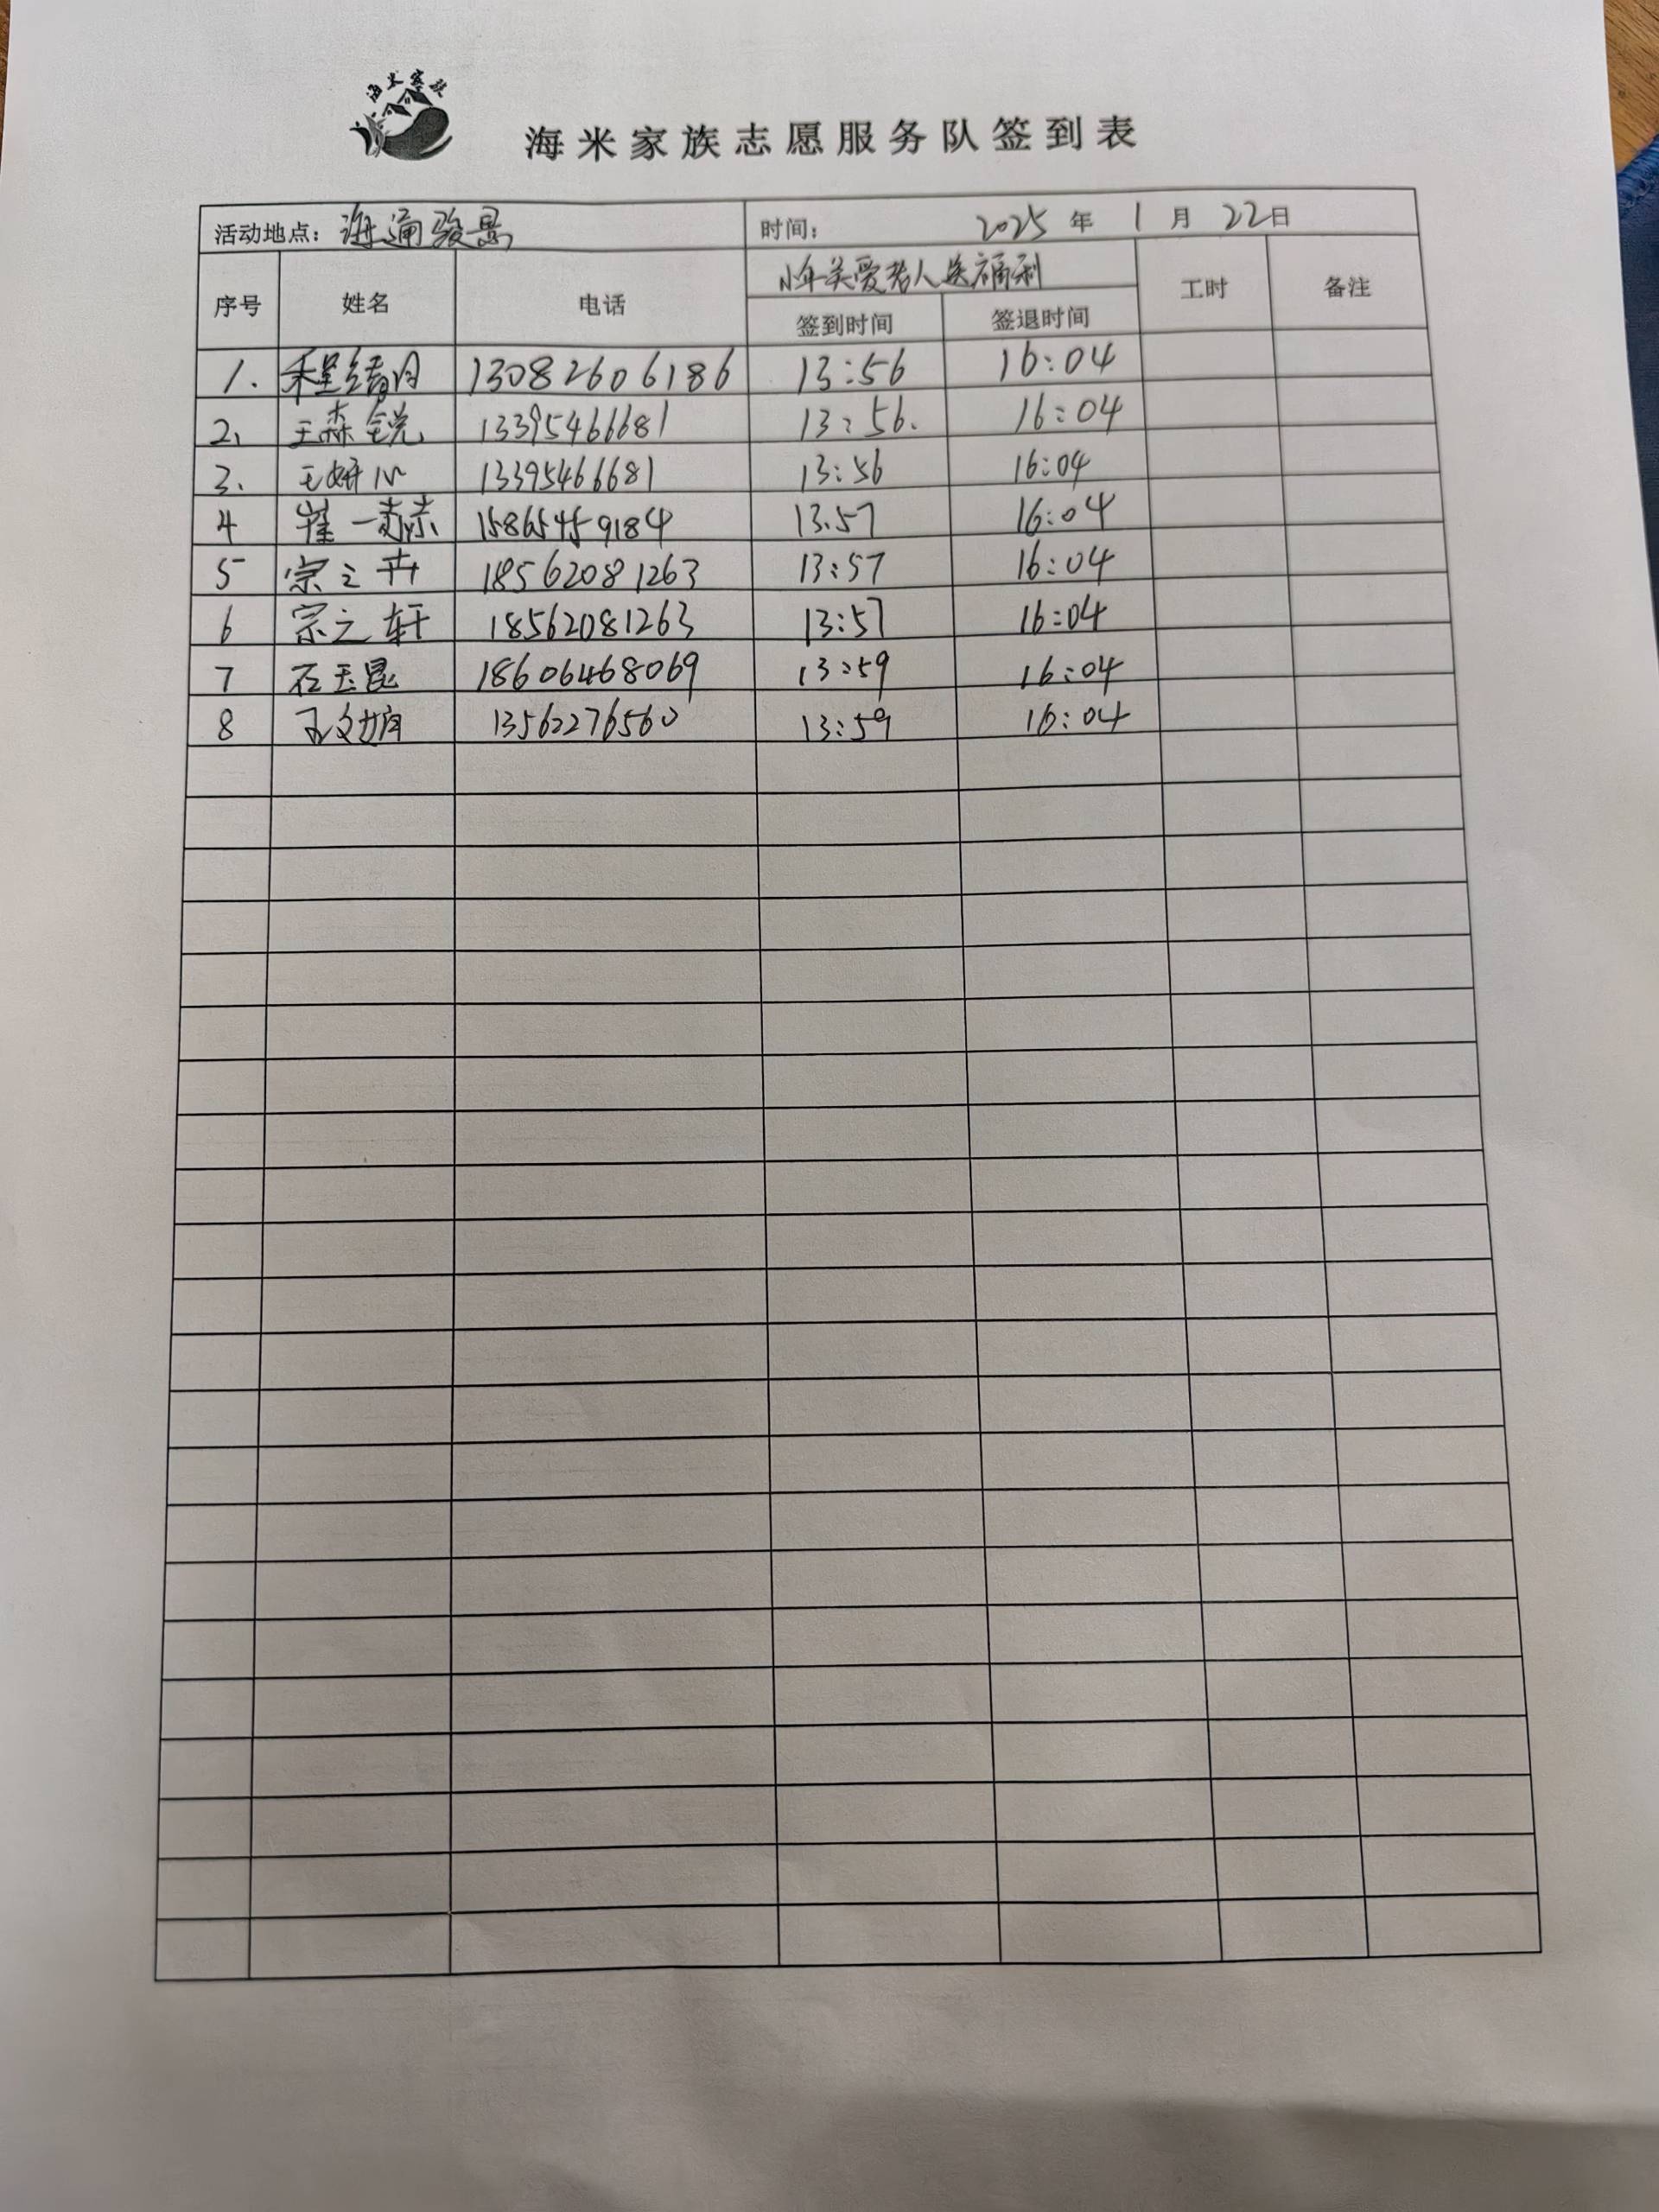 海米家族
海米家族志愿服务队签到表
活动地点：海通骏景 时间： 2025 年 1 月 22 日
序号 姓名 电话 小年关爱老人送福利 工时 备注
签到时间 签退时间
1. 程绪月 13082606186 13:56 16:04
2、 王森锐 13395466681 13:56. 16:04
3、 王妍心 13395466681 13:56 16:04
4 崔一 15865459184 13.57 16:04
5 宗之卉 18562081263 13:57 16:04
6 宗之轩 18562081263 13:57 16:04
7 石玉昆 18606468069 13:59 16:04
8 13562276560 13:59 16:04